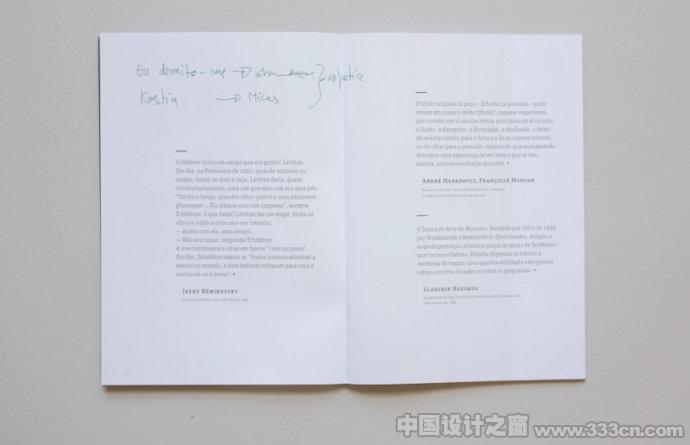 Eu demito-me
Kostia → Micas
Tchékhov tinha um amigo que era pintor, Lévitan.
Um dia, na Primavera de 1892, quando estavam no
campo, foram os dois à caça. Lévitan feriu, quase
involuntariamente, uma ave que veio cair aos seus pés.
“Um bico longo, grandes olhos pretos e uma admirável
plumagem... Ela olhava-nos com surpresa”, escreve
Tchékhov. O que fazer? Lévitan faz um esgar, fecha os
olhos e suplica com uma voz trémula:
— Acaba com ela, meu amigo.
— Não sou capaz, responde Tchékhov.
A ave continuava a olhar em frente “com surpresa”.
Por fim, Tchékhov matou-a: “Outra criatura adorável a
menos no mundo, e dois imbecis voltaram para casa e
sentaram-se à mesa”. •
Irène Némirovsky
O título original da peça – Tchaïka (a gaivota) – pode
evocar em russo o verbo
que contém em si um dos temas principais de A Gaivota:
a ilusão, a decepção, a divagação, a desilusão, o facto
de se estar virado para o futuro e de se esperar o irreal,
ou de olhar para o passado, esperando que esse passado
descubra uma esperança de ver nele o que aí não
existia, uma reconciliação possível. •
André Markowicz, Françoise Morvan
O Teatro de Arte de Moscovo, fundado por volta de 1898
por Stanislavski e Nemirovitch-Dantchenko, atingiu o
auge da perfeição artística graças às peças de Tchékhov,
que tornou célebres. Tchaïka depressa se tornou o
emblema do teatro: uma gaivota estilizada veio pousar
sobre a cortina do palco e sobre os programas. •
Vladimir Nabokov
中国设计之窗
www.333cn.com